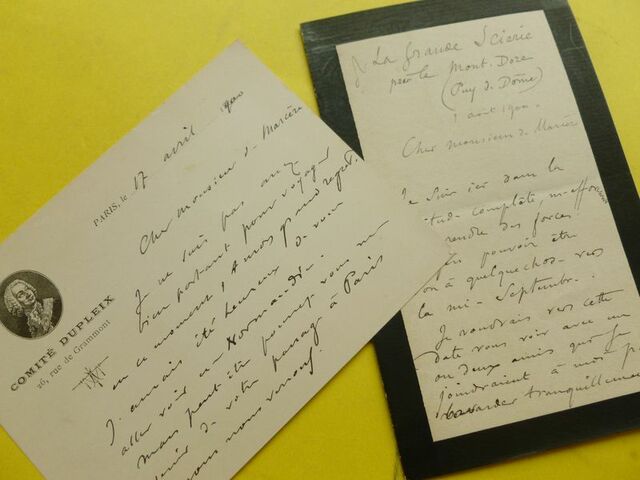 COMITÉ DUPLEIX
26, rue de Grammont
PARIS, le 17 avril 1900
Cher Monsieur de
Je ne suis pas assez
bien portant pour voyager
en ce moment, à mon grand regret.
J'aurais été heureux de vous
aller voir en Normandie.
mais peut être pourrez vous me
de votre passage à Paris
nous
La Grande Scierie
par le Mont-Dore
(Puy de Dôme)
1 août 1900.
Cher Monsieur de
Je suis ici dans la
complète, m'efforçant
rendre des forces
pouvoir être
à quelque chose vers
la mi-Septembre.
Je voudrais vers cette
date vous voir avec un
ou deux amis que je
joindraient à moi
bavarder tranquillement